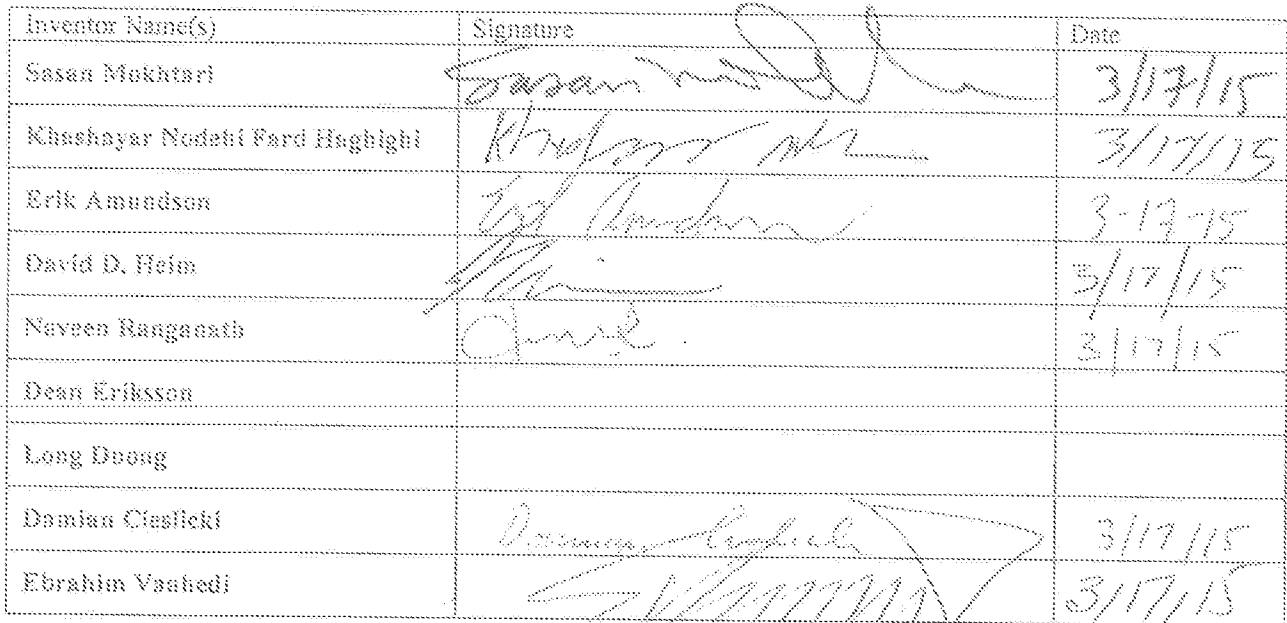 Inventor Name(s) Signature Date
Sasan Mokhtari Sasan 3/17/15
Khashayar Nodehi Fard Haghighi 3/17/15
Erik Amundson Erik Amundson 3-17-15
David D. Heim 3/17/15
Naveen Ranganath 3/17/15
Dean Eriksson
Long Duong
Damian Cieslicki Damian 3/17/15
Ebrahim Vaahedi 3/17/15